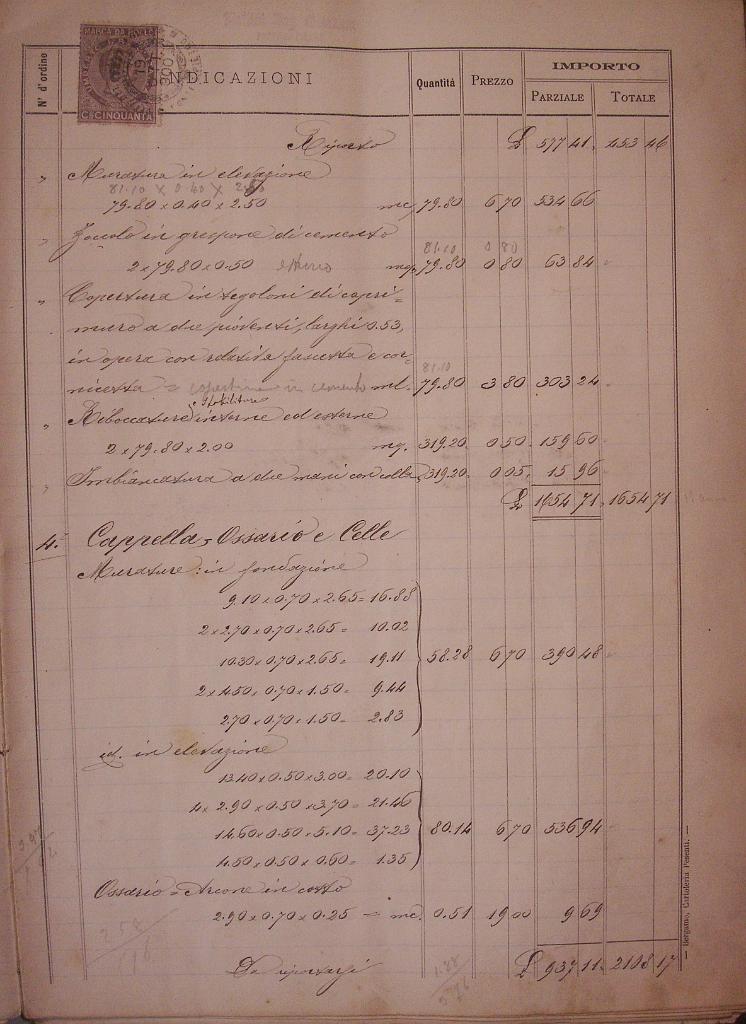 MARCA DA BOLLO
CE.CINQUANTA
N° d'ordine INDICAZIONI Quantità PREZZO IMPORTO
PARZIALE TOTALE
Riporto £ 577 41 453 46
" Muratura in elevazione
81.10 x 0.40 x 2.50
79.80 x 0.40 x 2.50 mc. 79.80 6 70 534 66
" Zoccolo in grespone di cemento 81.10 0 80
2 x 79.80 x 0.50 esterno mq. 79.80 0 80 63 84
" Copertura in tegoloni di capri-
muro a due pioventi, larghi 0.53,
in opera con relativa fascetta e cor-
81.10
nicetta = copertine in cemento ml. 79.80 3 80 303 24
e stabilitura
" Riboccature interne ed esterne
2 x 79.80 x 2.00 mq. 319.20 0 50 159 60
" Imbiancatura a due mani con colla 319.20 0 05 15 96
£ 1654 71 1654 71
4. Cappella, Ossario e Celle
Murature: in fondazione
9.10 x 0.70 x 2.65 = 16.88
2 x 2.70 x 0.70 x 2.65 = 10.02
10.30 x 0.70 x 2.65 = 19.11 58.28 6 70 390 48
2 x 4.50 x 0.70 x 1.50 = 9.44
2.70 x 0.70 x 1.50 = 2.83
id. in elevazione
13.40 x 0.50 x 3.00 = 20.10
4 x 2.90 x 0.50 x 3.70 = 21.46
14.60 x 0.50 x 5.10 = 37.23 80.14 6 70 536 94
4.50 x 0.50 x 0.60 = 1.35
Ossario = Arcone in cotto
2.90 x 0.70 x 0.25 = mc. 0.51 19 00 9 69
Da riportarsi £ 937 11 2108 17
— Bergamo, Cartoleria Pesenti. —